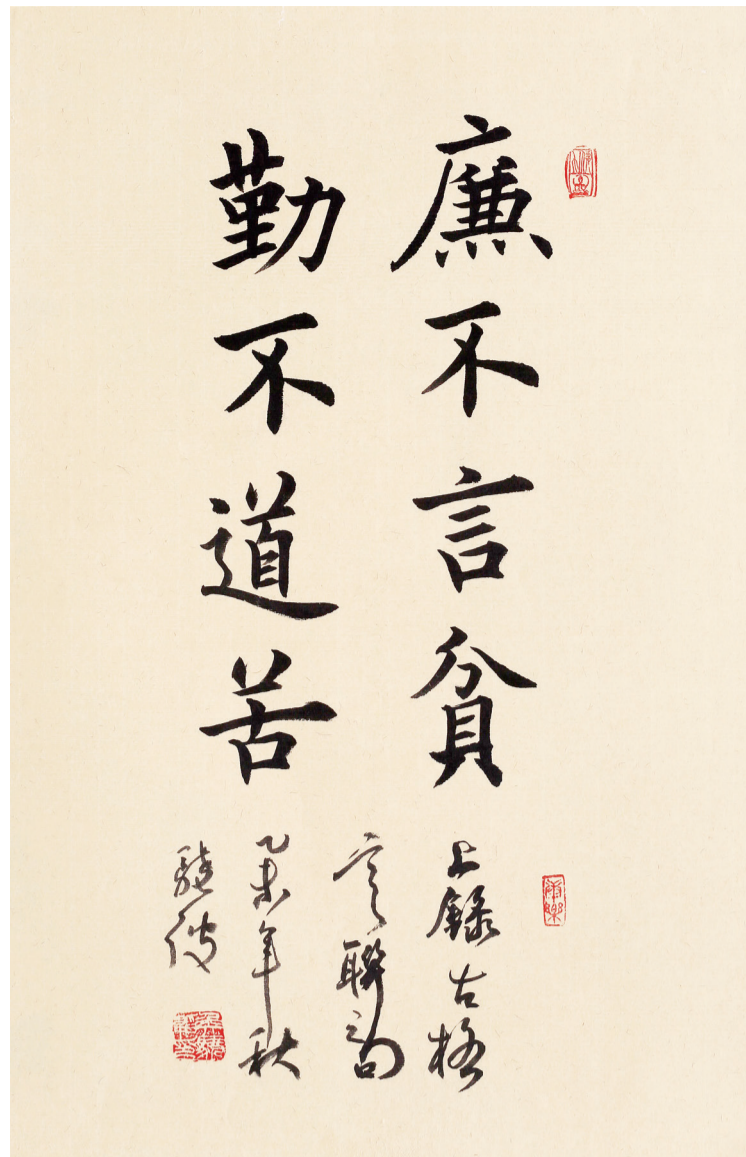 廉不言貧
勤不道苦
上錄古格
言聯句
乙未年秋